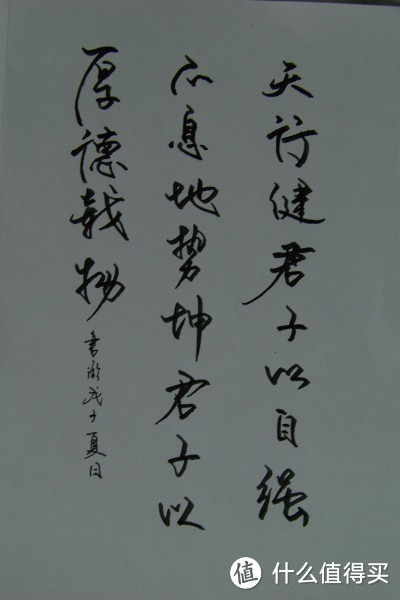 天行健君子以自强
不息地势坤君子以
厚德载物
书于戊子夏日
值 什么值得买